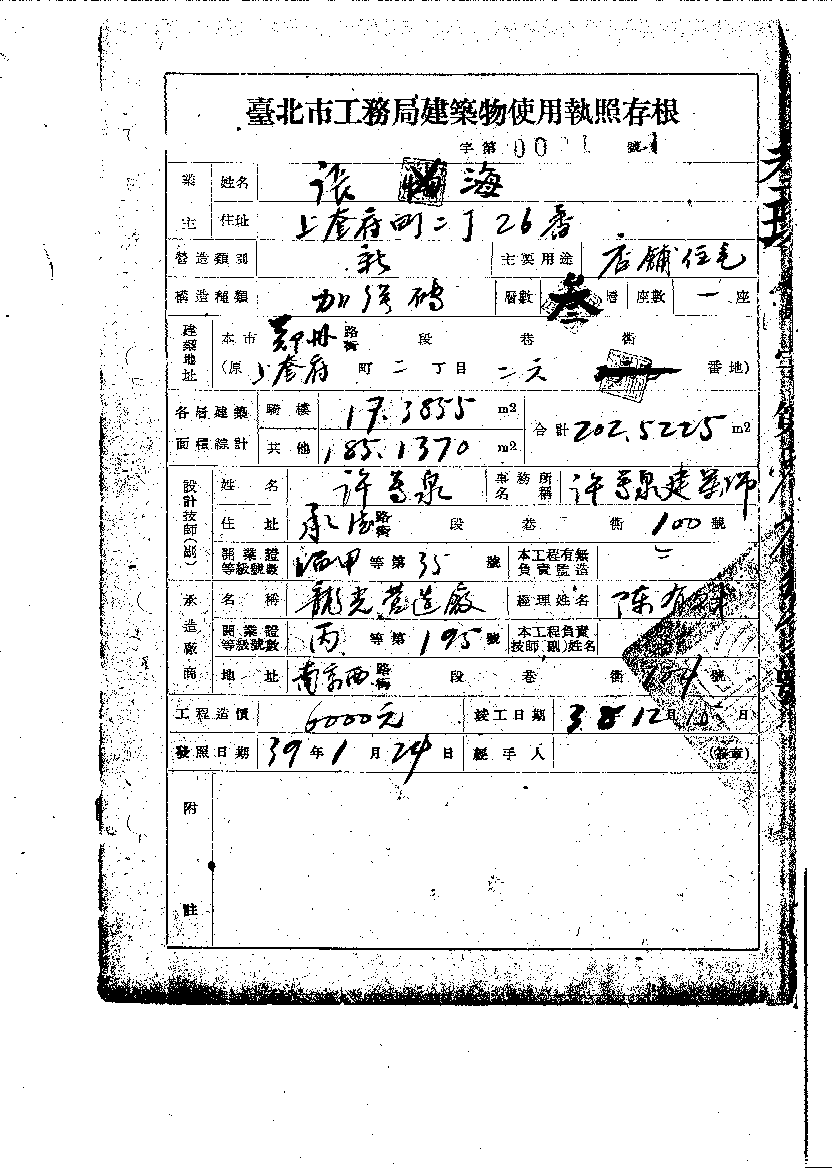 臺北市工務局建築物使用執照存根
字第00 1號
業主 姓名 張 海
住址 上奎府町二丁26番
營造類別 新 主要用途 店舖住宅
構造種類 加強磚 層數 叁層 座數 一座
建築地址 本市 鄭州路街 段 巷 衖
(原 上奎府町二丁目二六 番地)
各層建築面積總計 騎樓 17.3855 m2 合計 202.5225 m2
其他 185.1370 m2
設計技師(副) 姓名 許 泉 事務所名稱 許 泉建築師
住址 承德路街 段 巷 衖 100號
開業證等級號數 甲等第35號 本工程有無負責監造
承造廠商 名稱 龍光營造廠 經理姓名 陳有
開業證等級號數 丙等第195號 本工程負責技師(副)姓名
地址 南京西路街 段 巷 衖 104號
工程造價 6000元 竣工日期 38 12月10日
發照日期 39年1月24日 經手人 (簽章)
附註